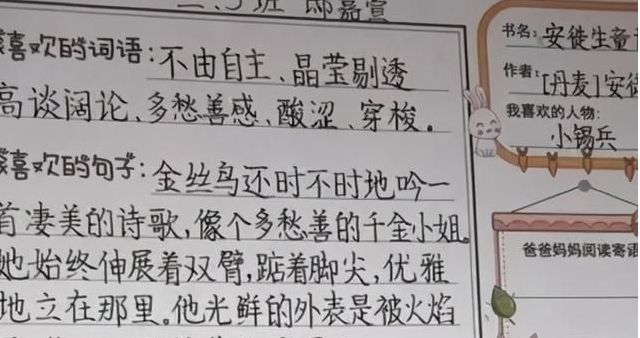 二、3班 邸嘉宣
喜欢的词语:不由自主、晶莹剔透
高谈阔论、多愁善感、酸涩、穿梭。
喜欢的句子:金丝鸟还时不时地吟一
首凄美的诗歌,像个多愁善的千金小姐。
她始终伸展着双臂,踮着脚尖,优雅
地立在那里。他光鲜的外表是被火焰
书名:安徒生童
作者:[丹麦]安徒
我喜欢的人物:
小锡兵
爸爸妈妈阅读寄语